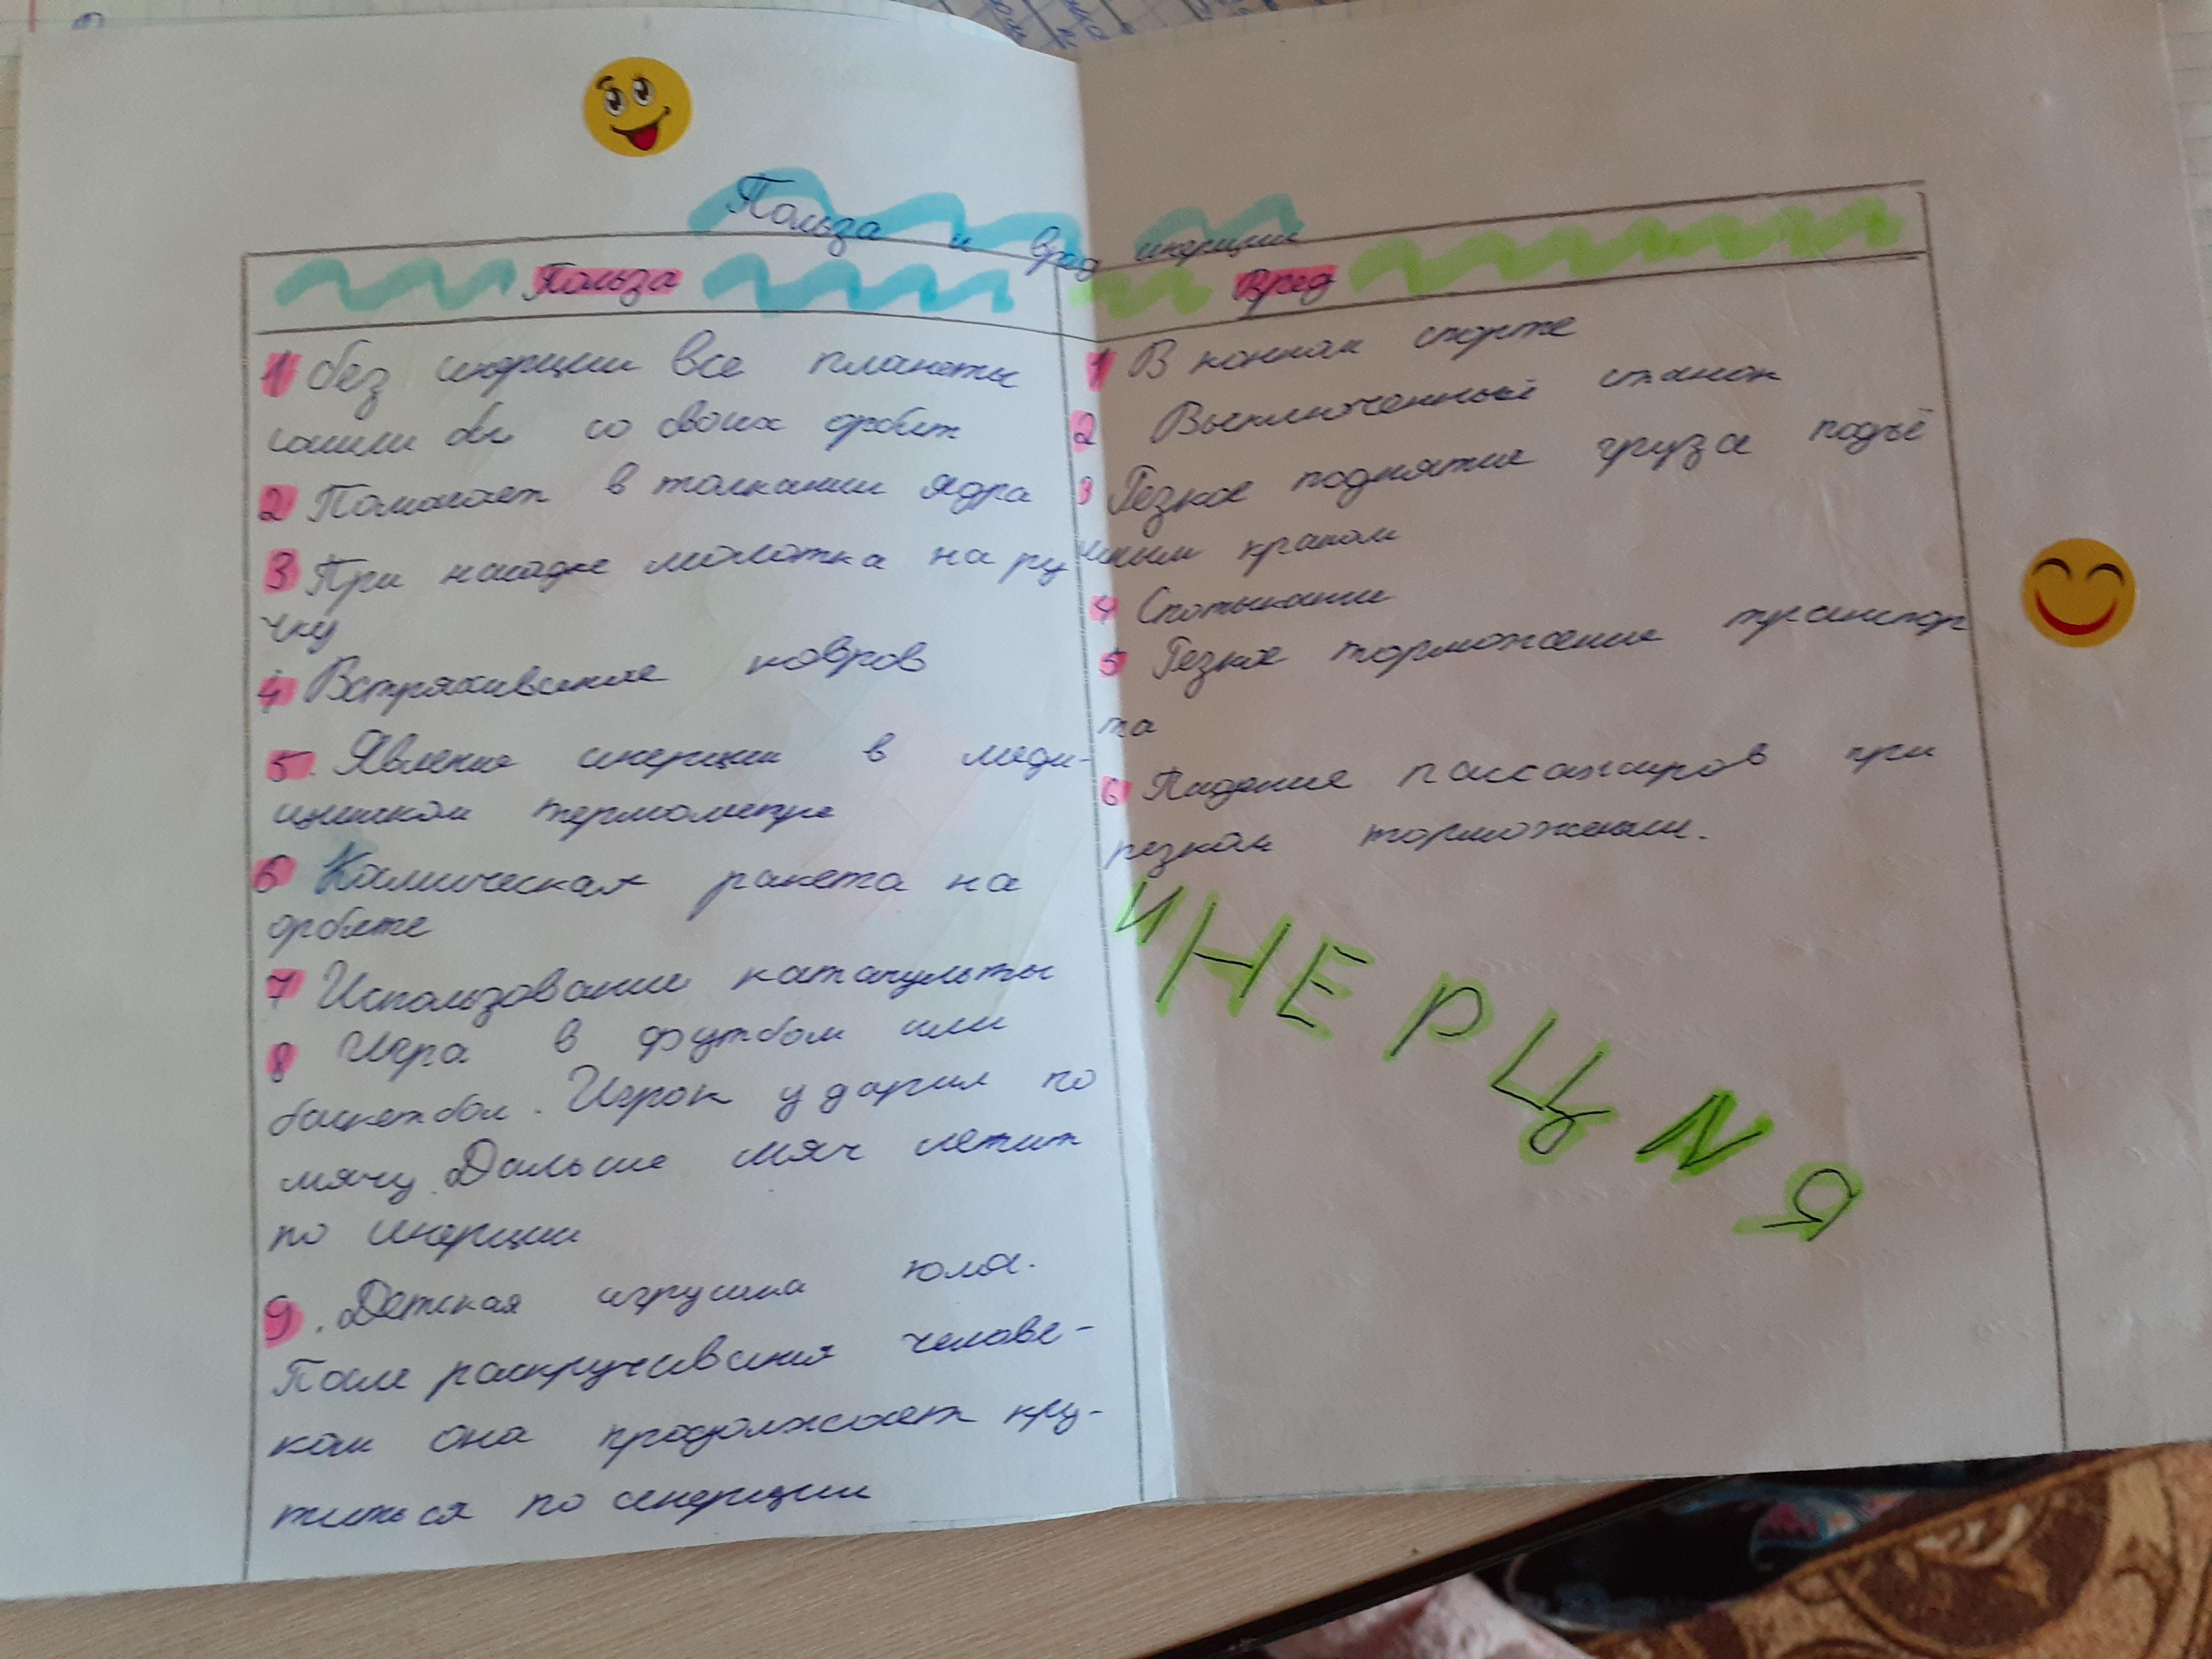 Польза и вред инерции
Польза
1 Без инерции все планеты
сошли бы со своих орбит
2 Помогает в толкании ядра
3 При насадке молотка на ру
чку
4 Встряхивание ковров
5. Явление инерции в меди-
цинском термометре
6 Космическая ракета на
орбите
7 Использование катапульты
8 Игра в футбол или
баскетбол. Игрок ударил по
мячу. Дальше мяч летит
по инерции
9. Детская игрушка юла.
После раскручивания челове-
ком она продолжает кру-
титься по инерции
Вред
1 В конном спорте
2 Выключенный станок
3 Резкое поднятие груза подъё
мным краном
4 Спотыкание
5 Резкое торможение транспор
та
6 Падение пассажиров при
резком торможении.
ИНЕРЦИЯ